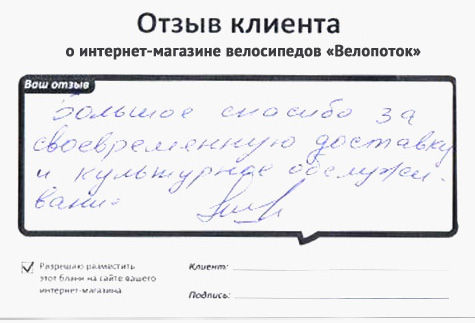 Отзыв клиента
о интернет-магазине велосипедов «Велопоток»
Ваш отзыв
Большое спасибо за
своевременную доставку
и культурное обслужи-
вание
Разрешаю разместить
этот бланк на сайте вашего
интернет-магазина
Клиент:
Подпись: